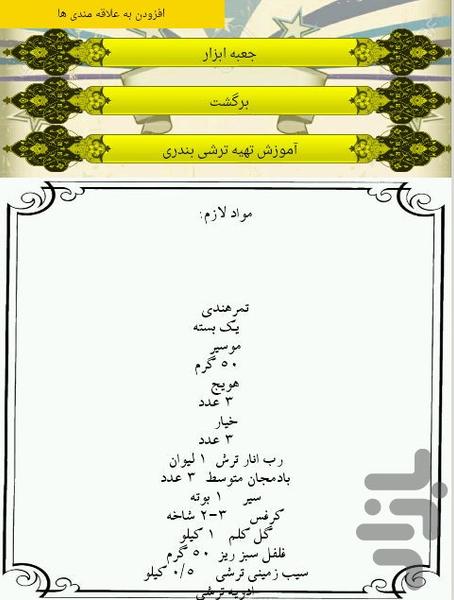 افزودن به علاقه مندی ها
جعبه ابزار
برگشت
آموزش تهیه ترشی بندری
مواد لازم:
تمرهندی
یک بسته
موسیر
۵۰ گرم
هویج
۳ عدد
خیار
۳ عدد
رب انار ترش ۱ لیوان
بادمجان متوسط ۳ عدد
سیر ۱ بوته
کرفس ۳-۲ شاخه
گل کلم ۱ کیلو
فلفل سبز ریز ۵۰ گرم
سیب زمینی ترشی ۰/۵ کیلو
ادویه ترشی
بازار